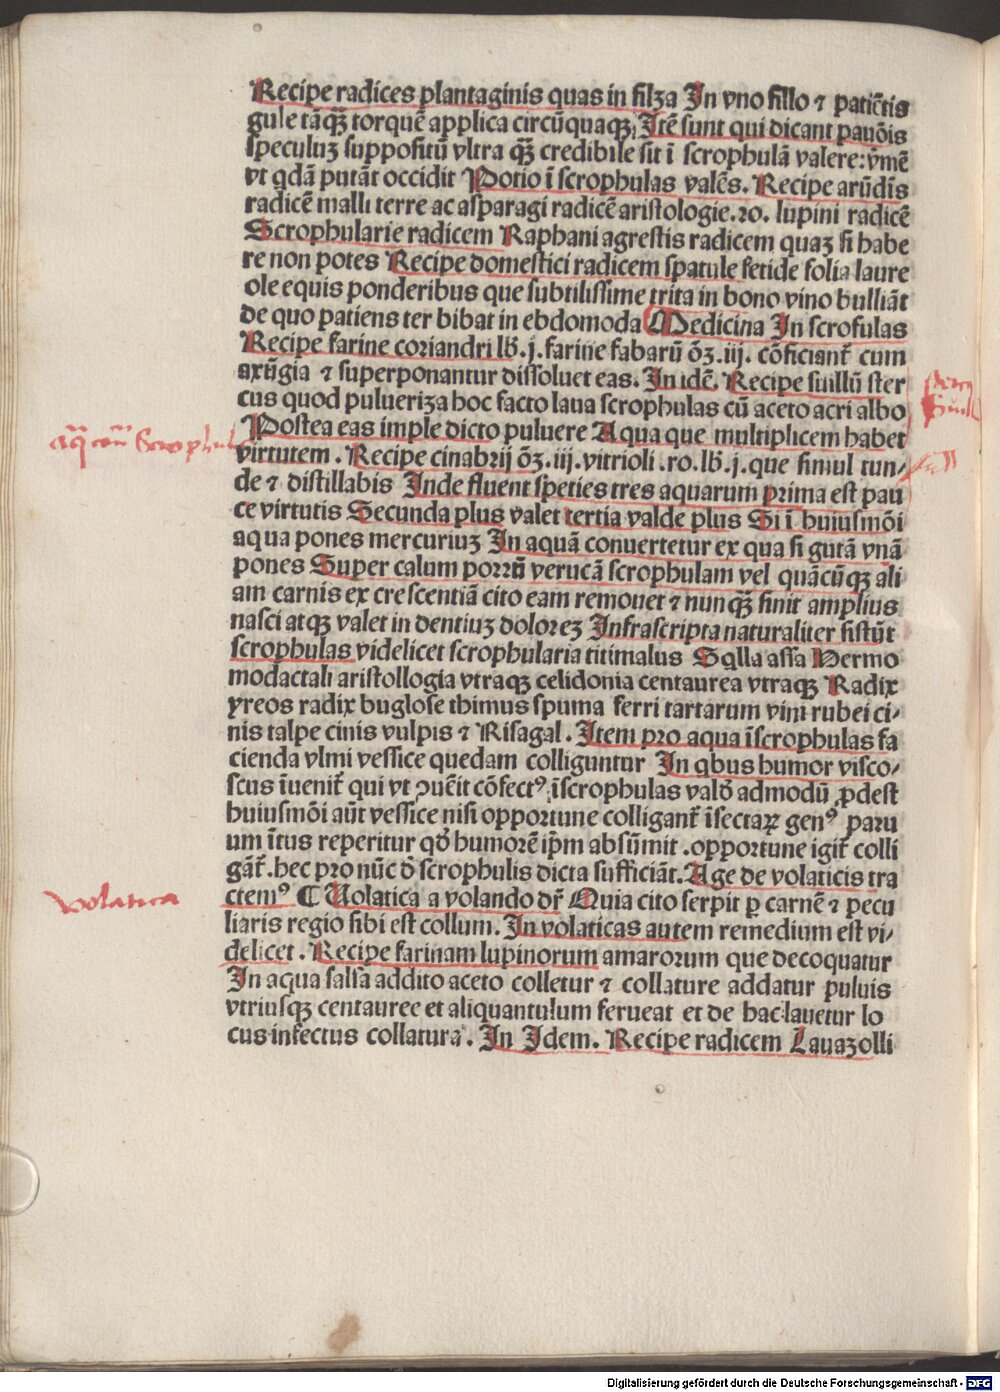 Recipe radices plantaginis quas in filza In vno fillo ⁊ patiẽtis
gule tãqȝ torquẽ applica circũquaqȝ. Itẽ sunt qui dicant pauõis
speculuȝ suppositũ vltra qȝ̃ credibile sit ĩ scrophulã valere: vmẽ
vt qdã putãt occidit Potio ĩ scrophulas valẽs. Recipe arũdĩs
radicẽ malli terre ac asparagi radicẽ aristologie.ro. lupini radicẽ
Scrophularie radicem Raphani agrestis radicem quaȝ si habe
re non potes Recipe domestici radicem spatule fetide folia laure
ole equis ponderibus que subtilissime trita in bono vino bulliãt
de quo patiens ter bibat in ebdomoda Medicina In scrofulas
Recipe farine coriandri lb̃.j.farine fabarũ õȝ.iij. cõficiant̃ cum
axũgia ⁊ superponantur dissoluet eas. In idẽ. Recipe suillũ ster
cus quod pulueriza hoc facto laua scrophulas cũ aceto acri albo
Postea eas imple dicto puluere Aqua que multiplicem habet
virtutem . Recipe cinabrij õȝ.iij.vitrioli.ro.lb̃.j.que simul tun/
de ⁊ distillabis Inde fluent speties tres aquarum prima est pau
ce virtutis Secunda plus valet tertia valde plus Si ĩ huiusmõi
aqua pones mercuriuȝ In aquã conuertetur ex qua si gutã vnã
pones Super calum porrũ verucã scrophulam vel quãcũqȝ ali
am carnis ex crescentiã cito eam remouet ⁊ nunqȝ̃ sinit amplius
nasci atqȝ valet in dentiuȝ doloreȝ Infrascripta naturaliter sistũt
scrophulas videlicet scrophularia titimalus Sqlla assa Hermo
modactali aristollogia vtraqȝ celidonia centaurea vtraqȝ Radix
yreos radix buglose thimus spuma ferri tartarum vini rubei ci/
nis talpe cinis vulpis ⁊ Risagal . Item pro aqua ĩscrophulas fa
cienda vlmi vessice quedam colliguntur In qbus humor visco/
scus ĩuenit̃ qui vt ꝯuẽit cõfectꝰ ĩscrophulas valð admodũ ꝓdest
huiusmõi aũt vessice nisi opportune colligant̃ ĩsectaꝝ genꝰ paru
um ĩtus reperitur qð humorẽ ip̃m absũmit .opportune igit̃ colli
gãt̃.hec pro nũc ð scrophulis dicta sufficiãt. Age de volaticis tra
ctemꝰ ¶ Uolatica a volando dr̃ Quia cito serpit ꝑ carnẽ ⁊ pecu
liaris regio sibi est collum. In volaticas autem remedium est vi/
delicet . Recipe farinam lupinorum amarorum que decoquatur
In aqua salsa addito aceto colletur ⁊ collature addatur puluis
vtriusqȝ centauree et aliquantulum ferueat et de hac lauetur lo
cus infectus collatura . In Idem. Recipe radicem Lauazolli
volatica
Digitalisierung gefördert durch die Deutsche Forschungsgemeinschaft - DFG